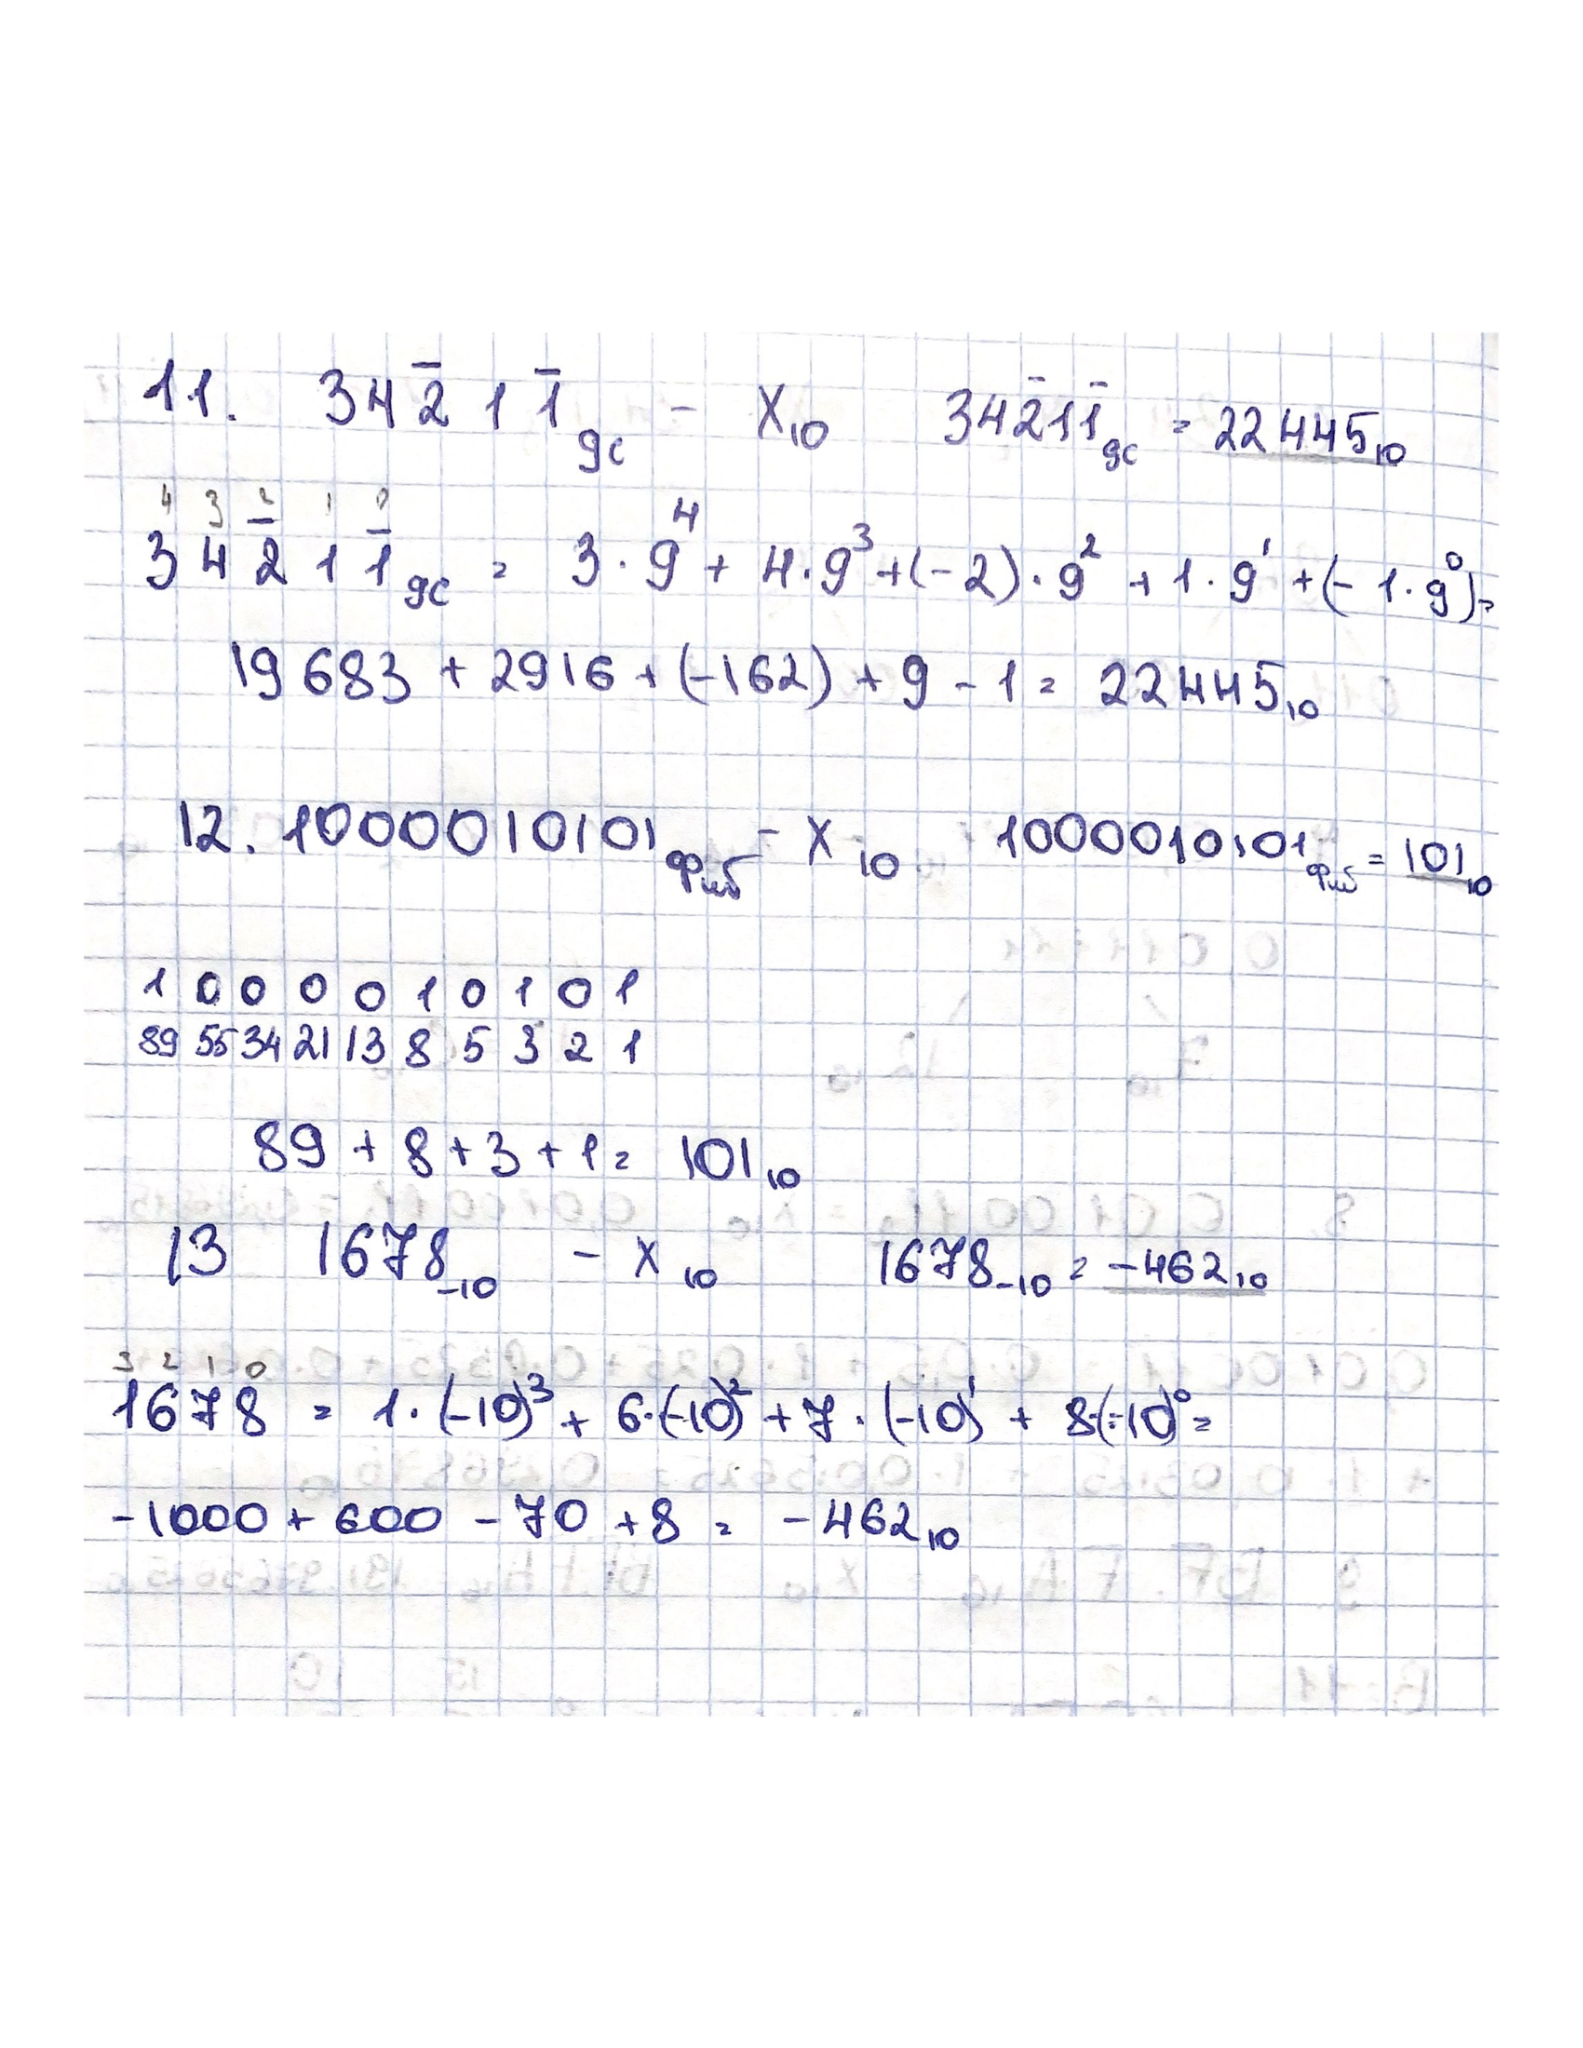 11. 342̅11̅₉c - X₁₀ 342̅11̅₉c = 22445₁₀
4 3 2 1 0
342̅11̅₉c = 3·9⁴ + 4·9³ + (-2)·9² + 1·9¹ + (-1·9⁰) =
19683 + 2916 + (-162) + 9 - 1 = 22445₁₀
12. 1000010101фиб - X₁₀ 1000010101фиб = 101₁₀
1 0 0 0 0 1 0 1 0 1
89 55 34 21 13 8 5 3 2 1
89 + 8 + 3 + 1 = 101₁₀
13 1678₋₁₀ - X₁₀ 1678₋₁₀ = -462₁₀
3 2 1 0
1678 = 1·(-10)³ + 6·(-10)² + 7·(-10)¹ + 8(-10)⁰ =
-1000 + 600 - 70 + 8 = -462₁₀